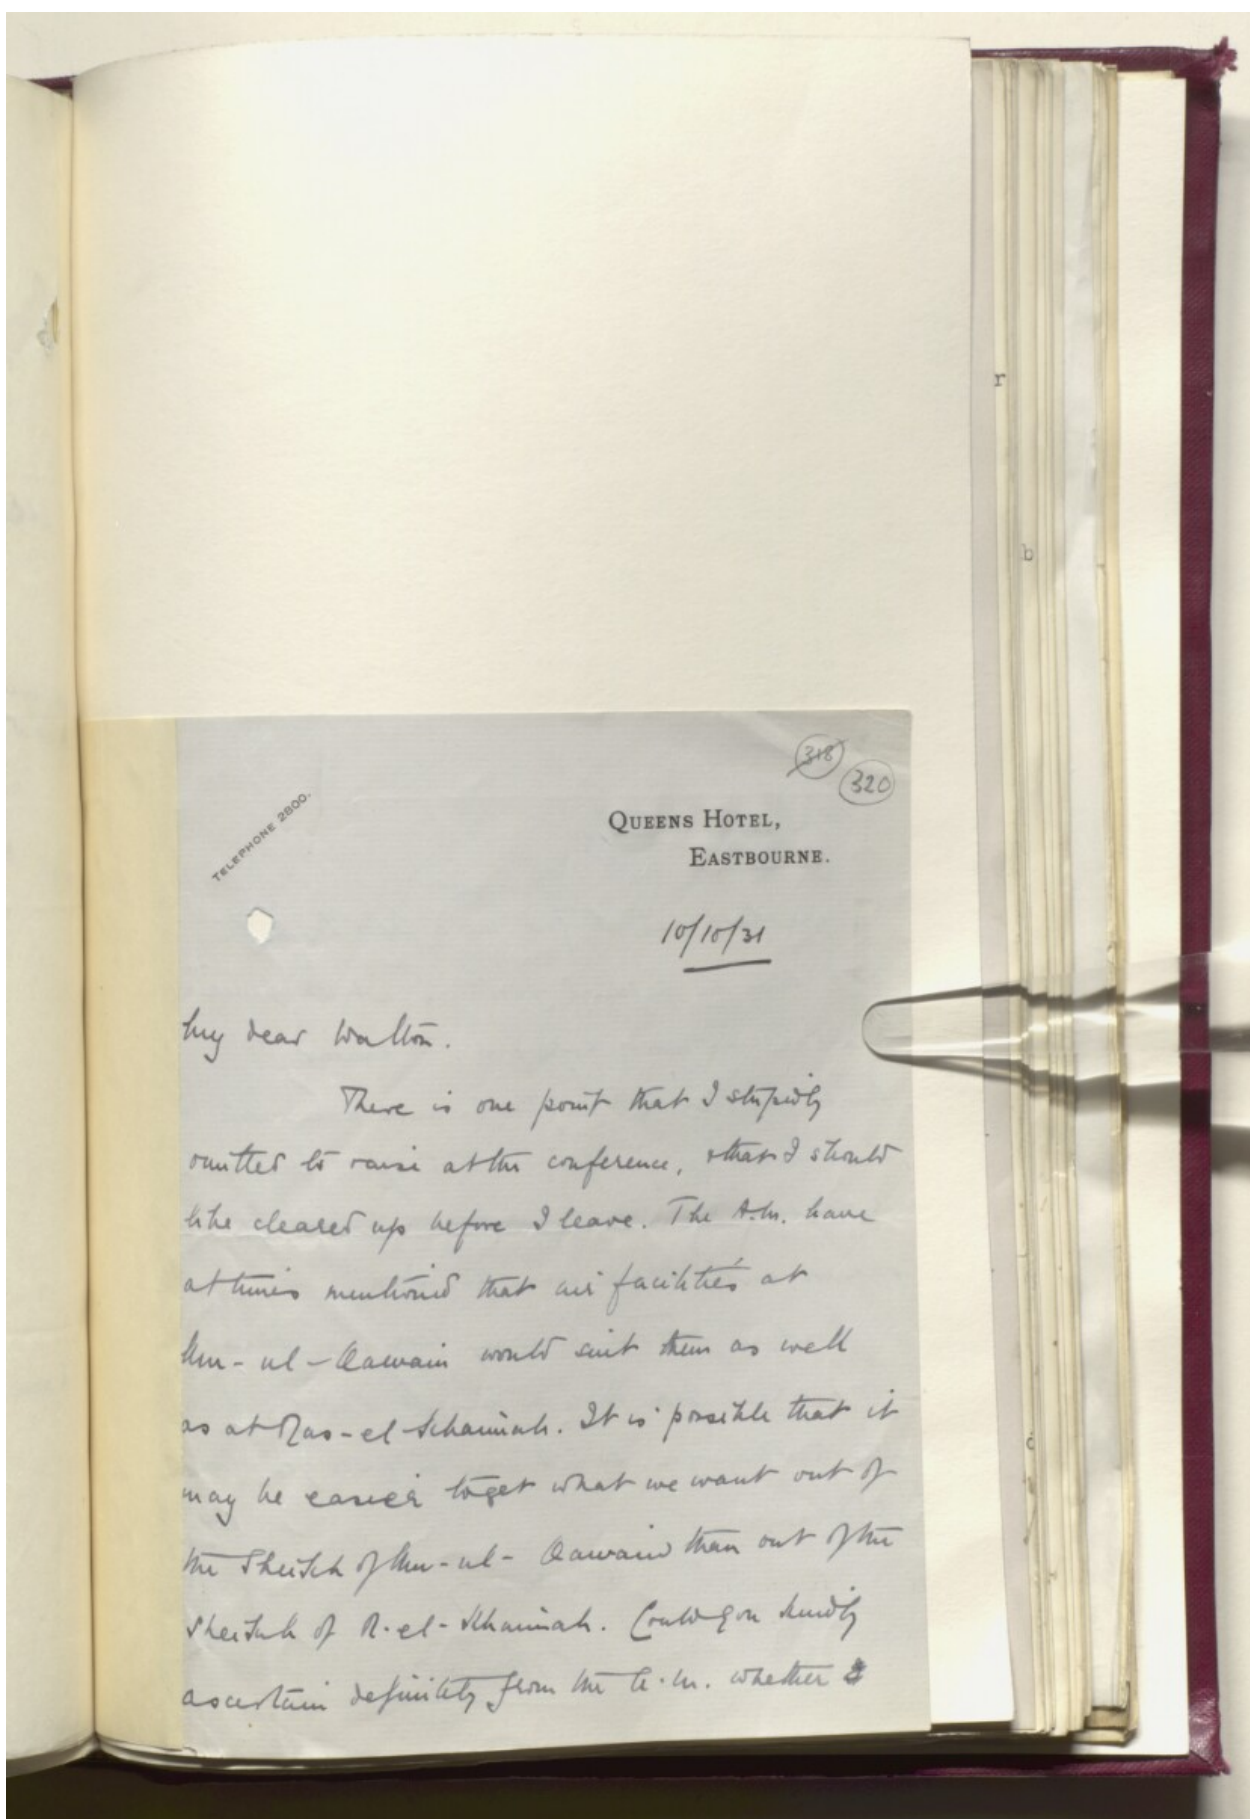 318
320
TELEPHONE 2800.
QUEENS HOTEL,
EASTBOURNE.
10/10/31
My dear Walton.
There is one point that I stupidly
omitted to raise at the conference, & that I should
like cleared up before I leave. The A.M. have
at times mentioned that air facilities at
Um-ul-Qawain would suit them as well
as at Ras-el-Khaimah. It is possible that it
may be easier to get what we want out of
the Sheikh of Um-ul-Qawain than out of the
Sheikh of R-el-Khaimah. Could you kindly
ascertain definitely from the A.M. whether
r
b